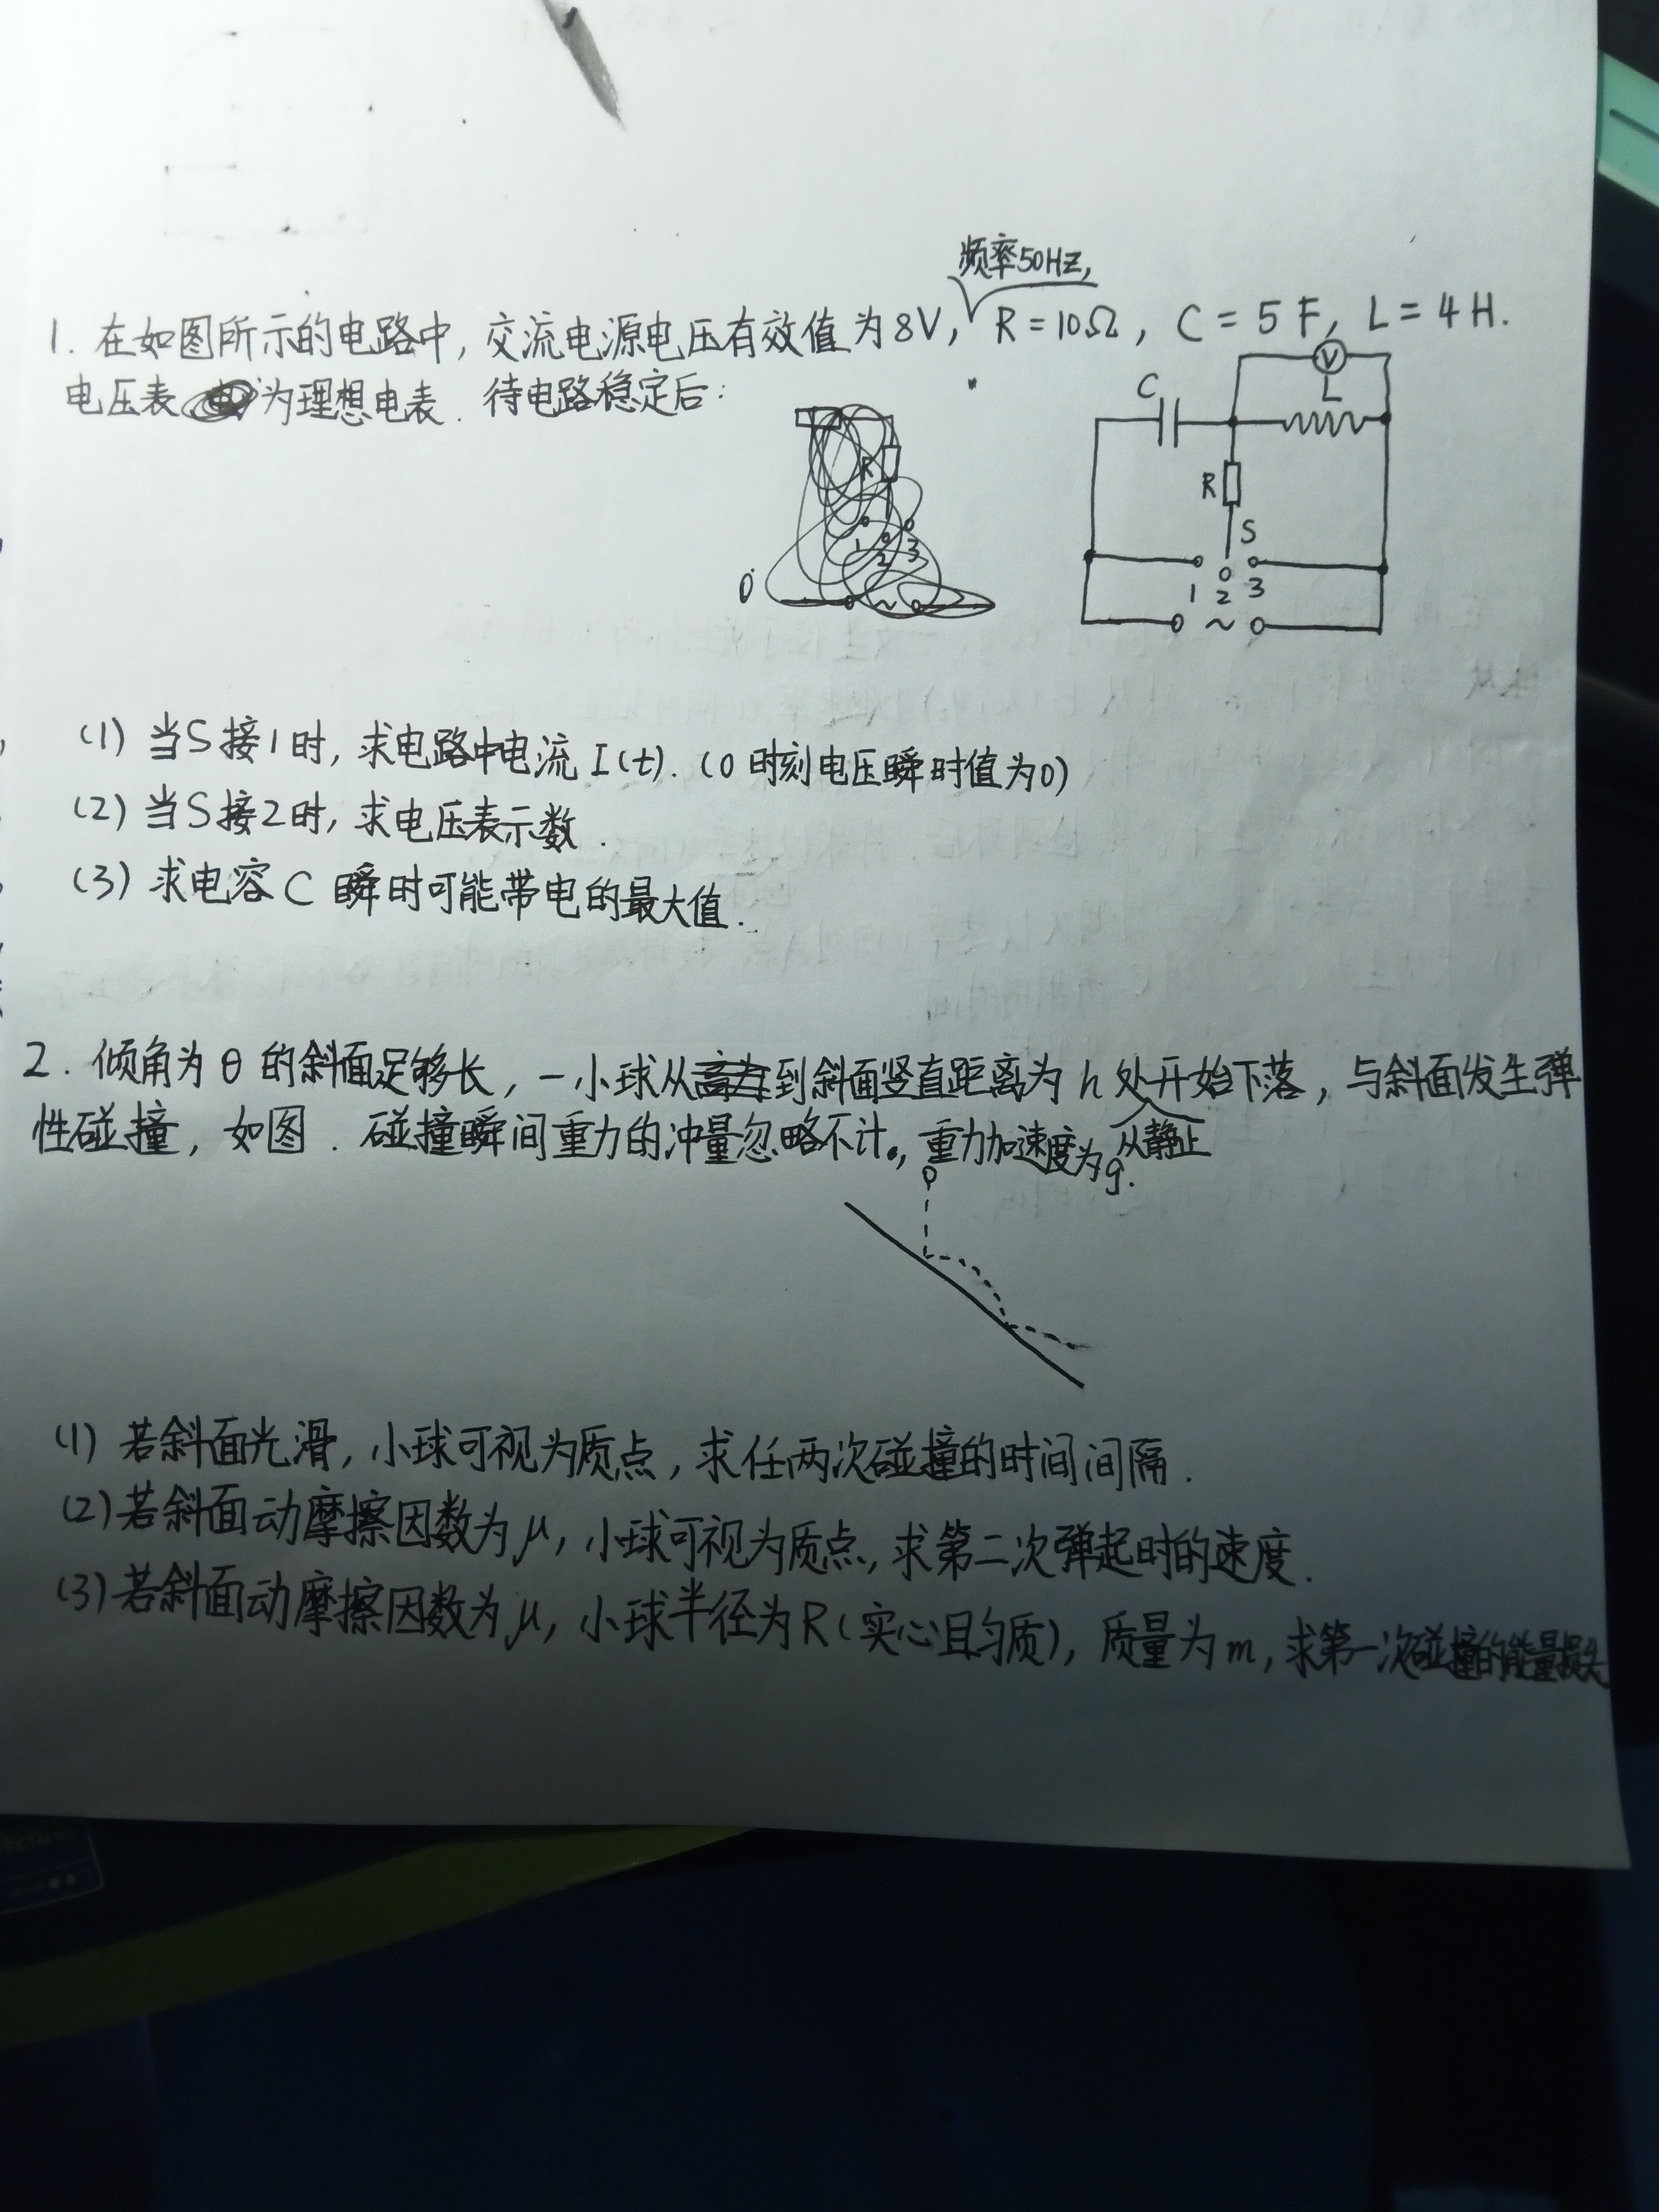 频率50Hz,
1. 在如图所示的电路中, 交流电源电压有效值为8V, R=10Ω, C=5F, L=4H.
电压表 为理想电表. 待电路稳定后:
V
C
L
R
S
1 2 3
~
R
1 2 3
~
(1) 当S接1时, 求电路中电流I(t). (0时刻电压瞬时值为0)
(2) 当S接2时, 求电压表示数.
(3) 求电容C瞬时可能带电的最大值.
2. 倾角为θ的斜面足够长, 一小球从到斜面竖直距离为h处开始下落, 与斜面发生弹
性碰撞, 如图. 碰撞瞬间重力的冲量忽略不计, 重力加速度为g.
从静止
(1) 若斜面光滑, 小球可视为质点, 求任两次碰撞的时间间隔.
(2) 若斜面动摩擦因数为μ, 小球可视为质点, 求第二次弹起时的速度.
(3) 若斜面动摩擦因数为μ, 小球半径为R(实心且匀质), 质量为m, 求第一次碰撞的能量损失